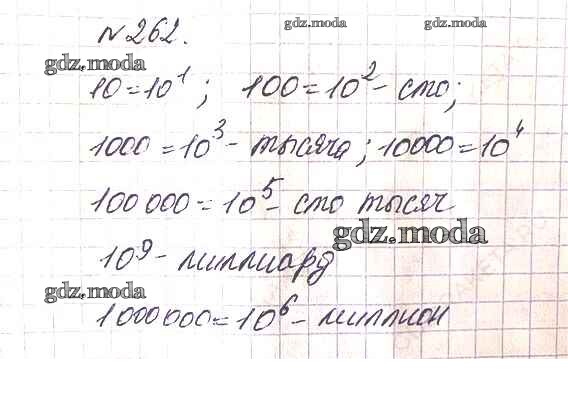 №262.
gdz.moda gdz.moda
gdz.moda
10=10¹; 100=10²- сто;
1000=10³- тысяча; 10000=10⁴
100 000=10⁵- сто тысяч
gdz.moda
10⁹- миллиард
gdz.moda
1000 000=10⁶- миллион